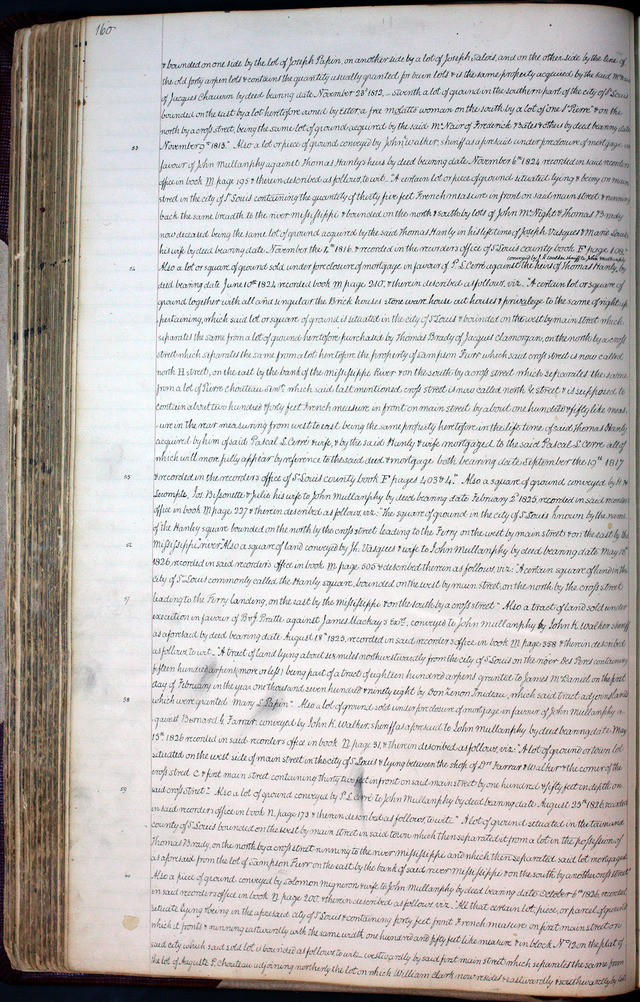 160
& bounded on one side by the lot of Joseph Papin, on another side by a lot of Joseph Salois, and on the other side by the line of
the old forty arpen lots & contains the quantity usually granted for barn lots & is the same property acquired by the said McNair
of Jacques Chauvin by deed bearing date November 28th 1812. Seventh a lot of ground in the southern part of the city of St Louis
bounded on the east by a lot heretofore owned by Ester a free molatto woman on the south by a lot of one St Pierre & on the
north by a cross street, being the same lot of ground acquired by the said McNair of Frederick Bates & others by deed bearing date
53 November 9th 1813." Also a lot or piece of ground conveyed by John Walker, sheriff as aforesaid under foreclosure of mortgage in
favour of John Mullanphy against Thomas Hanly's heirs by deed bearing date November 6th 1824 recorded in said recorders
office in book M page 195 & therein described as follows, to wit. "A certain lot or piece of ground situated lying & being on main
street in the city of St Louis containing the quantity of thirty five feet French measure in front on said main street & running
back the same breadth to the river Mississippi & bounded on the north & south by lots of John McNight & Thomas Brady
now deceased being the same lot of ground acquired by the said Thomas Hanly in his life time of Joseph Vasques & Marie Louis
his wife by deed bearing date November the 4th 1816 & recorded in the recorders office of St Louis county book F page 108."
conveyed by J. K. Walker sheriff to John Mullanphy
Also a lot or square of ground sold under foreclosure of mortgage in favour of P. L. Cerré against the heirs of Thomas Hanly, by
deed bearing date June 10th 1824 recorded book M page 210, & therein described as follows, viz. "A certain lot or square of
ground together with all and singular the Brick houses stone ware house out houses & privalege to the same of right ap-
pertaining, which said lot or square of ground is situated in the city of St Louis & bounded on the west by main street which
separates the same from a lot of ground heretofore purchased by Thomas Brady of Jacques Clamorgan, on the north by a cross
street which separates the same from a lot heretofore the property of Sampson Furr which said cross street is now called
north H street, on the east by the bank of the Mississippi River & on the south by a cross street which separates the same
from a lot of Pierre Chouteau Senr. which said last mentioned cross street is now called north G street & is supposed to
contain about two hundred & forty feet French measure in front on main street by about one hundred & fifty like meas-
ure in the rear measuring from west to east being the same property heretofore in the life time of said Thomas Hanly
acquired by him of said Pascal L. Cerré & wife, & by the said Hanly & wife mortgaged to the said Pascal L. Cerré all of
which will more fully appear by reference to the said deed & mortgage both bearing date September the 19th 1817
55 & recorded in the recorders office of St Louis county book F pages 403 & 4." Also a square of ground conveyed by H. M.
Lecompte, Jos Bissonette & Julie his wife to John Mullanphy by deed bearing date February 2d 1825 recorded in said recorders
office in book M page 227 & therein described as follows, viz: "The square of ground in the city of St Louis known by the name
of the Hanley square bounded on the north by the cross street leading to the Ferry on the west by main street & on the east by the
Mississippi river" Also a square of land conveyed by Jh. Vasques & wife to John Mullanphy by deed bearing date May 10th
1826 recorded in said recorder's office in book M page 505 & described therein as follows, viz: "A certain square of land in the
city of St Louis commonly called the Hanly square, bounded on the west by main street, on the north by the cross street
57 leading to the Ferry landing, on the east by the Mississippi & on the south by a cross street." Also a tract of land sold under
execution in favour of B & J Pratte against James Mackay's Exr., conveyed to John Mullanphy by John K. Walker sheriff
as aforesaid by deed bearing date August 18th 1825, recorded in said recorders office in book M page 358 & therein described
as follows to wit. "A tract of land lying about six miles northwestwardly from the city of St Louis on the river Des Peres containing
fifteen hundred arpens (more or less) being part of a tract of eighteen hundred arpens granted to James McDaniel on the first
day of February in the year one thousand seven hundred & ninety eight by Don Zenon Trudeau, which said tract adjoins lands
58 which were granted Mary L Papin." Also a lot of ground sold under foreclosure of mortgage in favour of John Mullanphy a-
gainst Bernard G. Farrar, conveyed by John K. Walker, sheriff as aforesaid to John Mullanphy by deed bearing date May
15th 1826 recorded in said recorders office in book N page 31, & therein described as follows, viz: "A lot of ground or town lot
situated on the west side of main street in the city of St Louis & lying between the shop of Drs Farrar & Walker & the corner of the
cross street C & first main street containing thirty two feet in front on said main street by one hundred & fifty feet in depth on
59 said cross street." Also a lot of ground conveyed by P. L. Cerré to John Mullanphy by deed bearing date August 25th 1826 recorded
in said recorders office in book N page 173 & therein described as follows, to wit. "A lot of ground situated in the town and
county of St Louis bounded on the west by main street in said town which then separated it from a lot in the possession of
Thomas Brady, on the north by a cross street running to the river Mississippi and which then separated said lot mortgaged
as aforesaid from the lot of Sampson Furr on the east by the bank of said river Mississippi & on the south by another cross street"
60 Also a piece of ground conveyed by Solomon Migneron & wife to John Mullanphy by deed bearing date October 6th 1826, recorded
in said recorders office in book N page 200, & therein described as follows, viz. "All that certain lot, piece, or parcel of ground
situate lying & being in the aforesaid city of St Louis & containing forty feet front French measure on first main street on
which it fronts & running eastwardly with the same width one hundred and fifty feet like measure & in block No 12 on the plat of
said city which said sold lot is bounded as follows to wit westwardly by said first main street which separates the same from
the lot of Auguste P. Chouteau adjoining northerly the lot on which William Clark now resides eastwardly & southwardly by lots